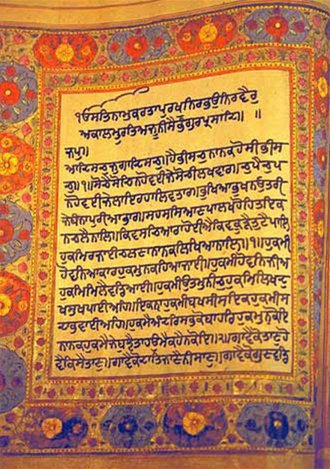 ੴਸਤਿਨਾਮੁਕਰਤਾਪੁਰਖੁਨਿਰਭਉਨਿਰਵੈਰੁ
ਅਕਾਲਮੂਰਤਿਅਜੂਨੀਸੈਭੰਗੁਰਪ੍ਰਸਾਦਿ॥ ॥
ਜਪੁ॥
ਆਦਿਸਚੁਜੁਗਾਦਿਸਚੁ॥ਹੈਭੀਸਚੁਨਾਨਕਹੋਸੀਭੀਸ
ਚੁ॥੧॥ਸੋਚੈਸੋਚਿਨਹੋਵਈਜੇਸੋਚੀਲਖਵਾਰ॥ਚੁਪੈਚੁਪ
ਨਹੋਵਈਜੇਲਾਇਰਹਾਲਿਵਤਾਰ॥ਭੁਖਿਆਭੁਖਨਉਤਰੀ
ਜੇਬੰਨਾਪੁਰੀਆਭਾਰ॥ਸਹਸਸਿਆਣਪਾਲਖਹੋਹਿਤਇਕ
ਨਚਲੈਨਾਲਿ॥ਕਿਵਸਚਿਆਰਾਹੋਈਐਕਿਵਕੂੜੈਤੁਟੈਪਾਲਿ
ਹੁਕਮਿਰਜਾਈਚਲਣਾਨਾਨਕਲਿਖਿਆਨਾਲਿ॥੧॥ਹੁਕਮੀ
ਹੋਵਨਿਆਕਾਰਹੁਕਮੁਨਕਹਿਆਜਾਈ॥ਹੁਕਮੀਹੋਵਨਿਜੀਅ
ਹੁਕਮਿਮਿਲੈਵਡਿਆਈ॥ਹੁਕਮੀਉਤਮੁਨੀਚੁਹੁਕਮਿਲਿਖਿਦੁ
ਖਸੁਖਪਾਈਅਹਿ॥ਇਕਨਾਹੁਕਮੀਬਖਸੀਸਇਕਿਹੁਕਮੀਸ
ਦਾਭਵਾਈਅਹਿ॥ਹੁਕਮੈਅੰਦਰਿਸਭੁਕੋਬਾਹਰਿਹੁਕਮਨਕੋਇ
ਨਾਨਕਹੁਕਮੈਜੇਬੁਝੈਤਹਉਮੈਕਹੈਨਕੋਇ॥੨॥ਗਾਵੈਕੋਤਾਣੁਹੋ
ਵੈਕਿਸੈਤਾਣੁ॥ਗਾਵੈਕੋਦਾਤਿਜਾਣੈਨੀਸਾਣੁ॥ਗਾਵੈਕੋਗੁਣਵਡਿ